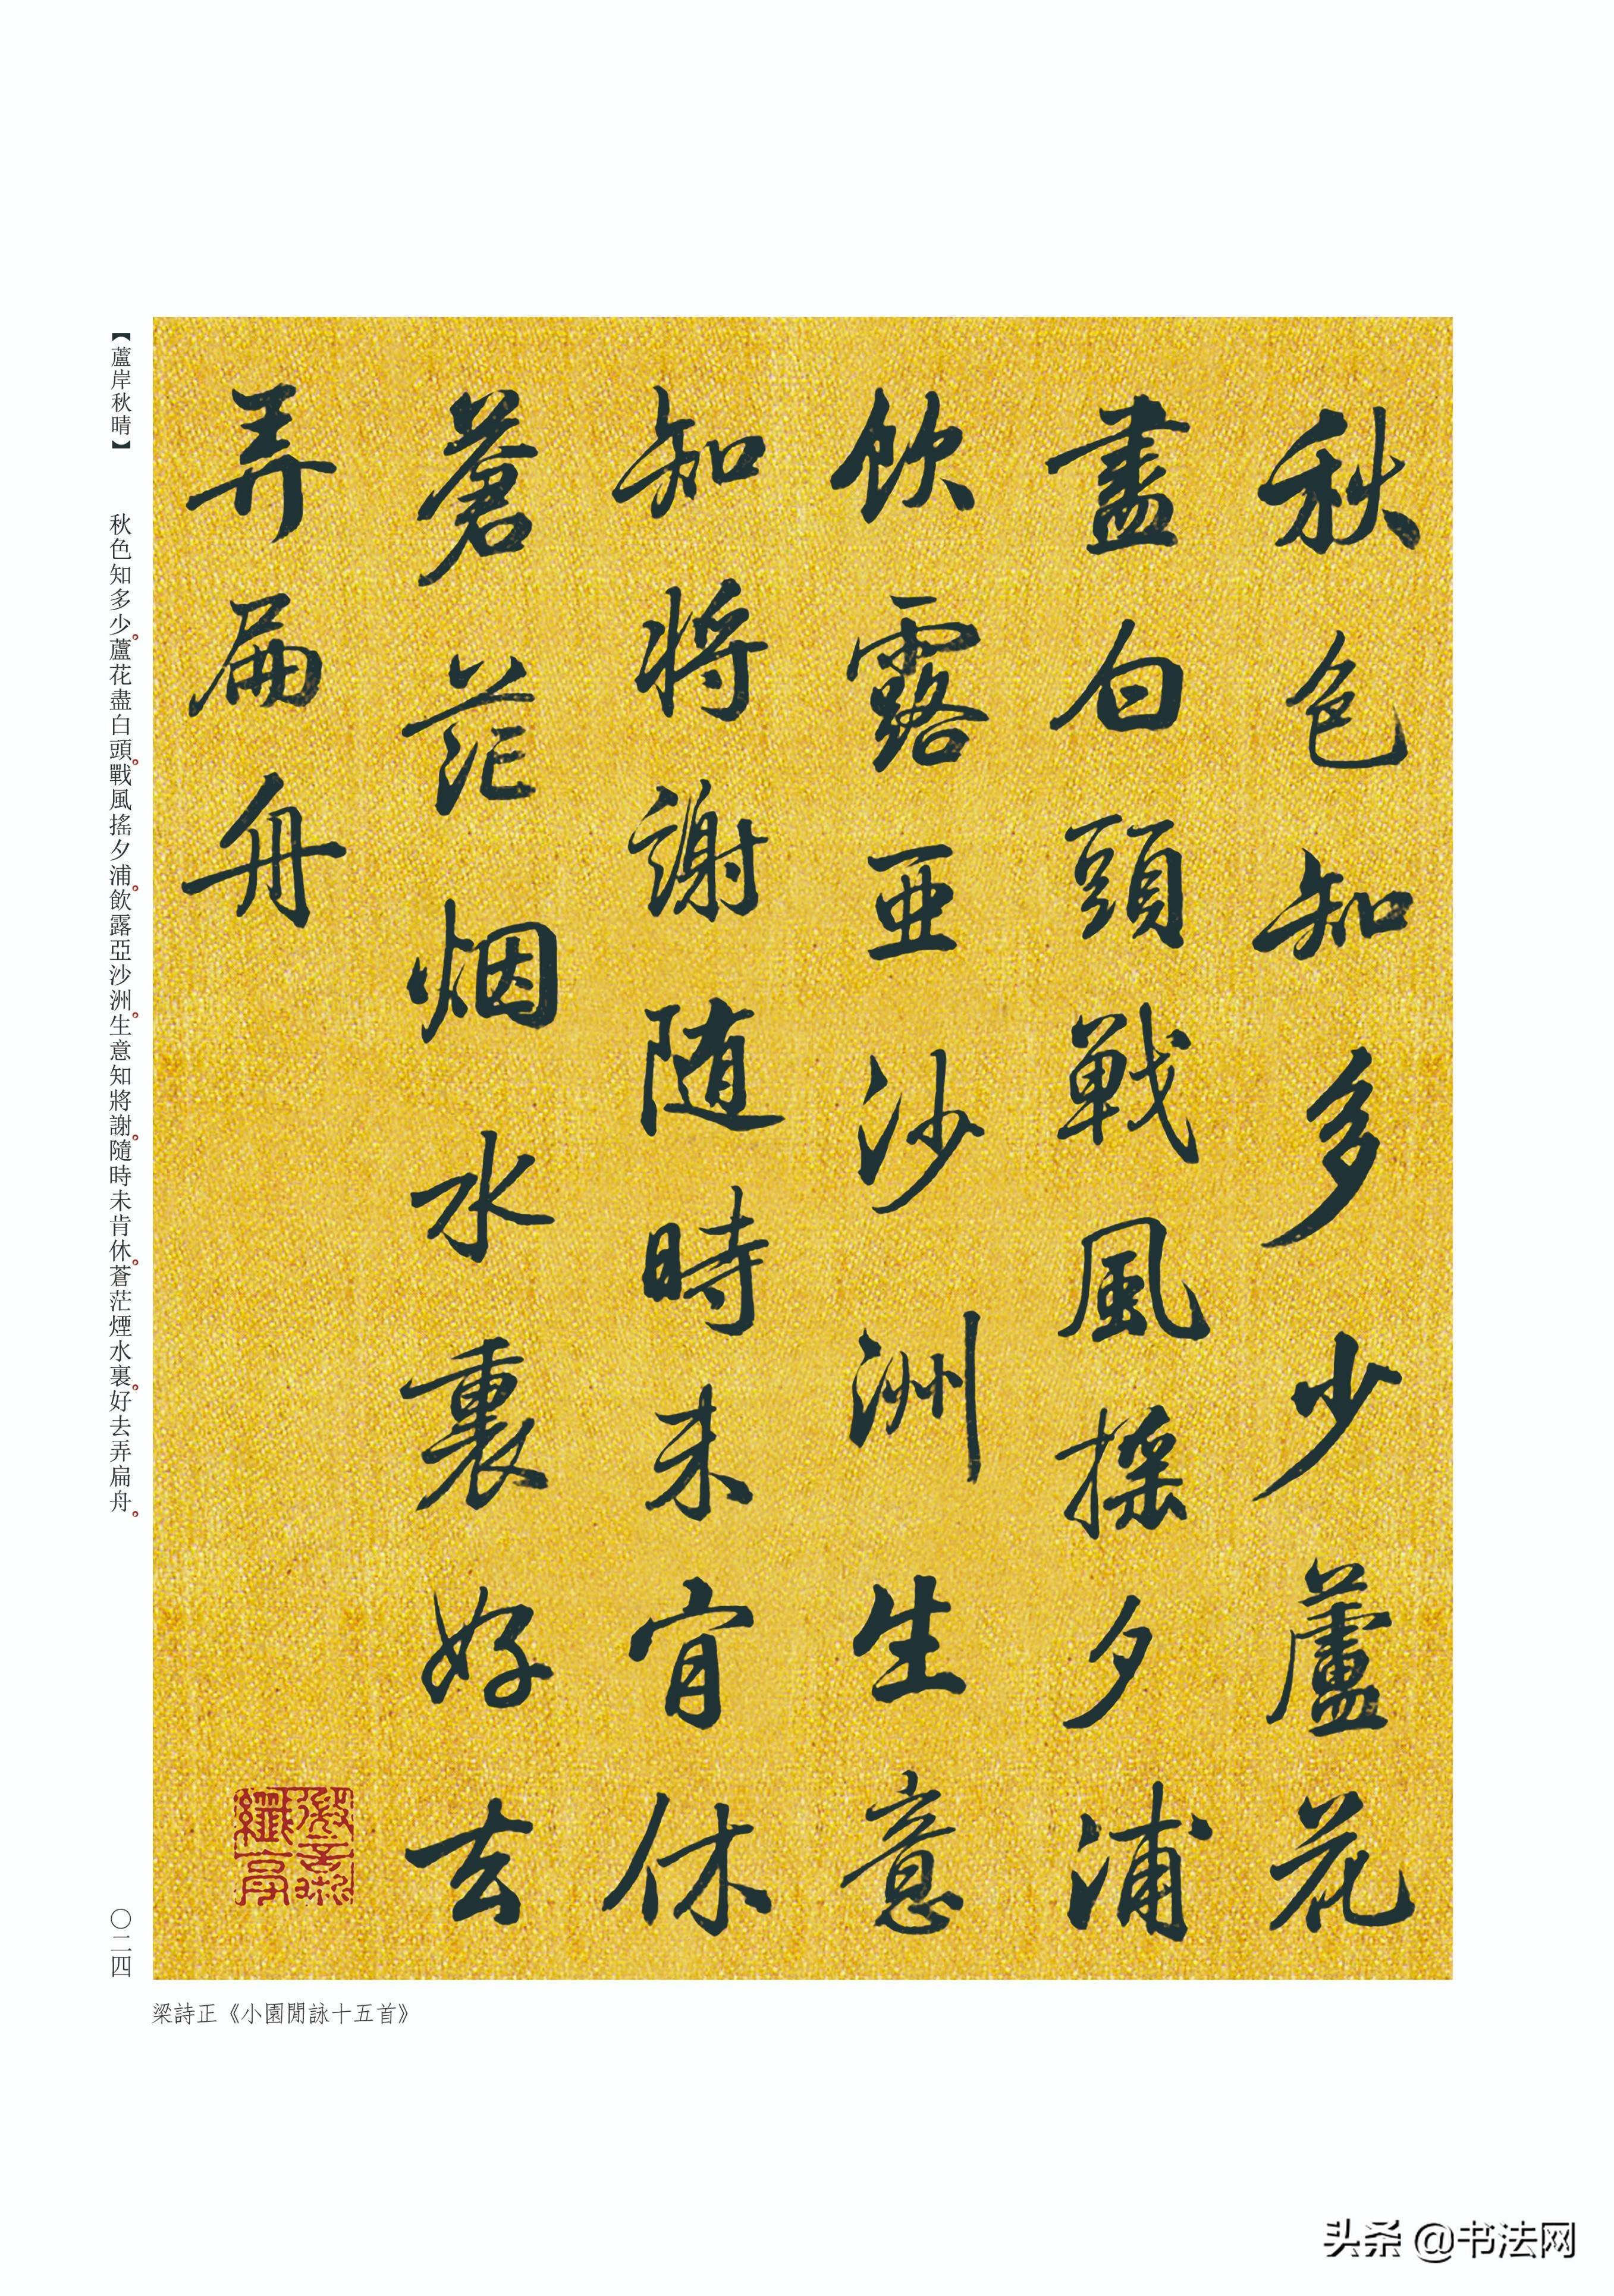 秋色知多少蘆花
盡白頭戰風搖夕浦
飲露亞沙洲生意
知將謝随時未肯休
蒼茫烟水裏好去
弄扁舟
【蘆岸秋晴】 秋色知多少。蘆花盡白頭。戰風搖夕浦。飲露亞沙洲。生意知將謝。隨時未肯休。蒼茫煙水裏。好去弄扁舟。
〇二四
梁詩正《小園閒詠十五首》
头条 @书法网